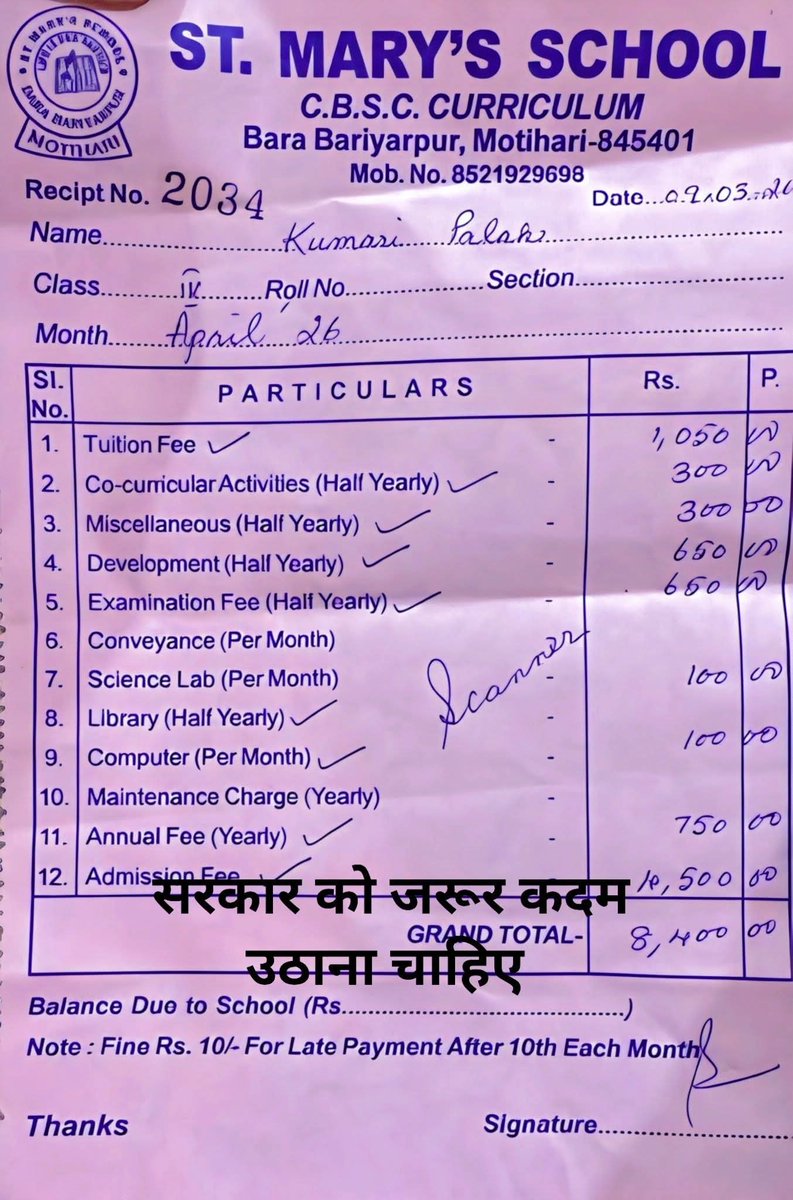 ST. MARY'S SCHOOL
C.B.S.C. CURRICULUM
Bara Bariyarpur, Motihari-845401
Mob. No. 8521929698
Recipt No. 2034
Date...
Name... Kumari Palak
Class... IV Roll No... Section...
Month... April '26
Sl. No. PARTICULARS Rs. P.
1. Tuition Fee ✓ - 1,050 00
2. Co-curricular Activities (Half Yearly) ✓ - 300 00
3. Miscellaneous (Half Yearly) ✓ - 300 00
4. Development (Half Yearly) ✓ - 650 00
5. Examination Fee (Half Yearly) ✓ - 650 00
6. Conveyance (Per Month)
Scanner
7. Science Lab (Per Month) - 100 00
8. Library (Half Yearly) ✓ -
9. Computer (Per Month) ✓ - 100 00
10. Maintenance Charge (Yearly) -
11. Annual Fee (Yearly) ✓ - 750 00
12. Admission Fee ✓ - 00
सरकार को जरूर कदम
GRAND TOTAL- 8,400 00
उठाना चाहिए
Balance Due to School (Rs...)
Note : Fine Rs. 10/- For Late Payment After 10th Each Month
Thanks
Signature...